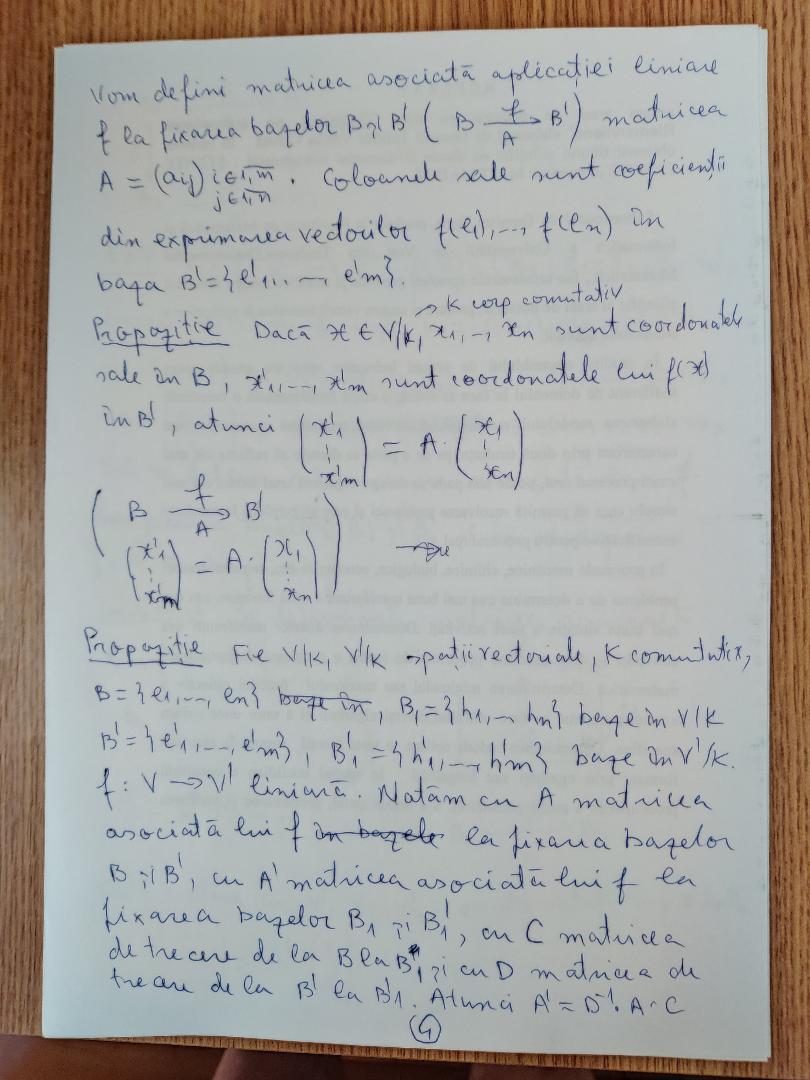 Vom defini matricea asociată aplicației liniare
f la fixarea bazelor B și B' ( B f→A B' ) matricea
A = (aij) i∈1,m j∈1,n . Coloanele sale sunt coeficienții
din exprimarea vectorilor f(e1), ..., f(en) în
baza B' = {e'1, ..., e'm}.
→ K corp comutativ
Propoziție Dacă x ∈ V/K, x1, .., xn sunt coordonatele
sale în B, x'1, ..., x'm sunt coordonatele lui f(x)
în B', atunci (x'1 ⋮ x'm) = A · (x1 ⋮ xn)
( B f→A B'
(x'1 ⋮ x'm) = A · (x1 ⋮ xn) )
Propoziție Fie V/K, V'/K spații vectoriale, K comutativ,
B = {e1, ..., en} baze în, B1 = {h1, .. hn} baze în V/K
B' = {e'1, ..., e'm}, B'1 = {h'1, .. h'm} baze în V'/K.
f : V → V' liniară. Notăm cu A matricea
asociată lui f în bazele la fixarea bazelor
B și B', cu A' matricea asociată lui f la
fixarea bazelor B1 și B'1, cu C matricea
de trecere de la B la B1 și cu D matricea de
trecere de la B' la B'1. Atunci A' = D⁻¹ · A · C